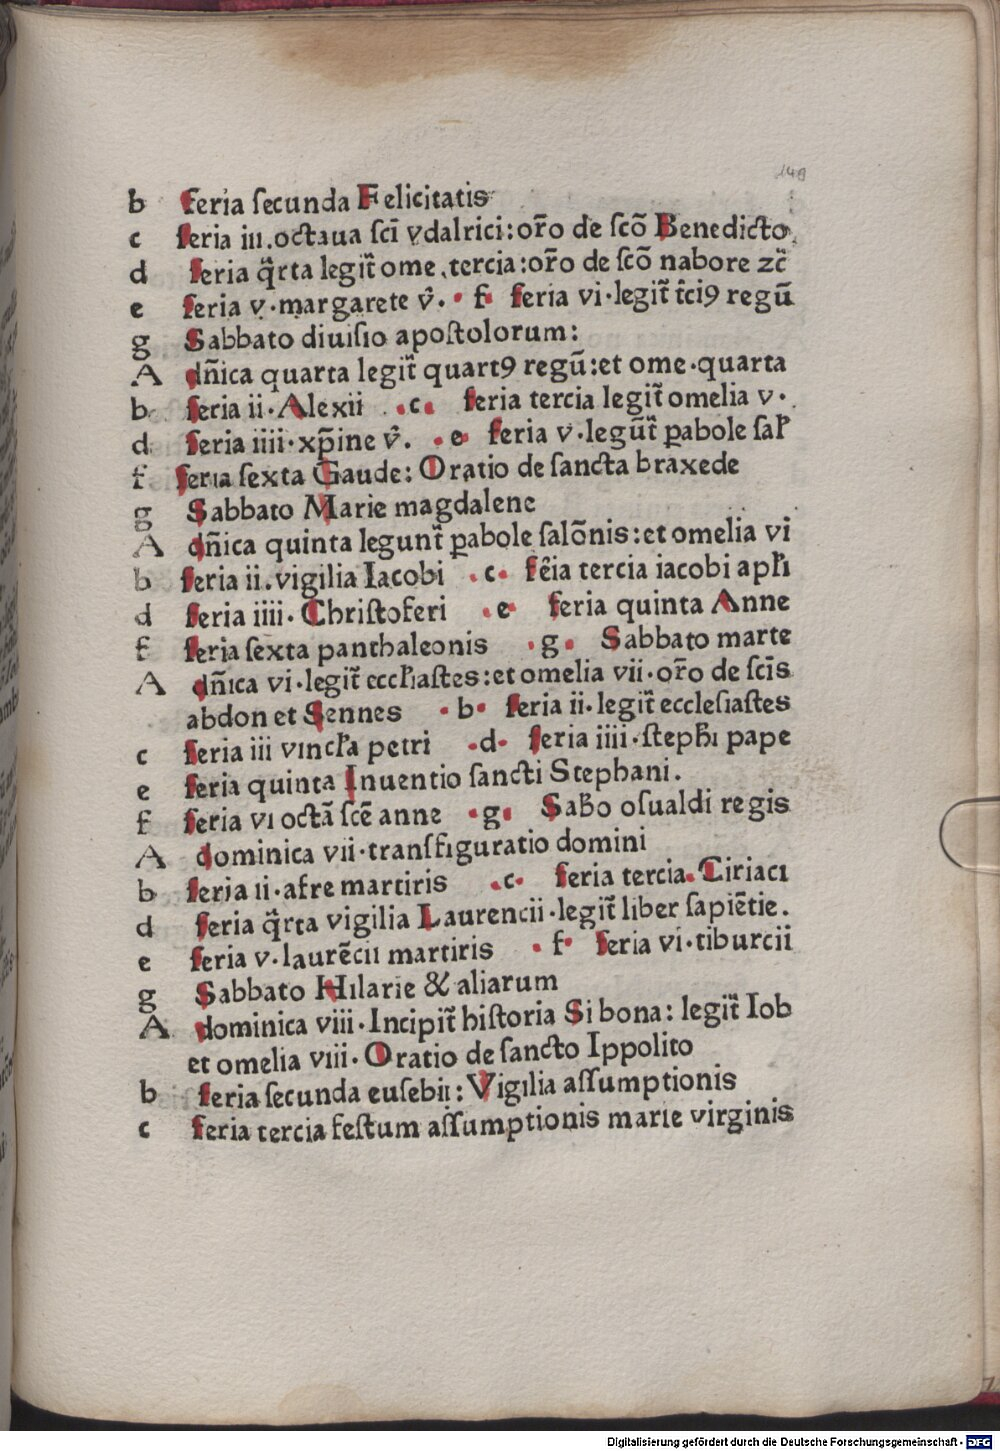 149
b feria ſecunda Felicitatis
c feria iii.octaua ſcī vdalrici:or̄o de ſcō Benedicto.
d feria q̄rta legit̄ ome.tercia:or̄o de ſcō nabore zc̄
e feria v·margarete v̄. · f· feria vi·legit̄ t̄ci9 regū
g Sabbato diuiſio apoſtolorum:
A dn̄ica quarta legit̄ quart9 regū:et ome·quarta
b feria ii·Alexii .c. feria tercia legit̄ omelia v·
d feria iiii·xp̄ine v̄. .e· feria v·legūt̄ ꝑabole ſal̄
f feria ſexta Gaude: Oratio de ſancta braxede
g Sabbato Marie magdalene
A dn̄ica quinta legunt̄ ꝑabole ſalōnis:et omelia vi
b feria ii.vigilia Iacobi .c· fēia tercia iacobi apl̄i
d feria iiii·Chriſtoferi .e· feria quinta Anne
f feria ſexta panthaleonis ·g· Sabbato marte
A dn̄ica vi·legit̄ eccl̄iaſtes:et omelia vii·or̄o de ſcīs
abdon et Sennes ·b· feria ii·legit̄ eccleſiaſtes
c feria iii vincl̄a petri .d· feria iiii·ſteph̄i pape
e feria quinta Inuentio ſancti Stephani.
f feria vi octā ſcē anne ·g· Sab̄o oſualdi regis
A dominica vii·tranſfiguratio domini
b feria ii·afre martiris .c· feria tercia.Ciriaci
d feria q̄rta vigilia Laurencii·legit̄ liber ſapiētie.
e feria v·laurēcii martiris · f· feria vi·tiburcii
g Sabbato Hilarie & aliarum
A dominica viii·Incipit̄ hiſtoria Si bona: legit̄ Iob
et omelia viii·Oratio de ſancto Ippolito
b feria ſecunda euſebii:Vigilia aſſumptionis
c feria tercia feſtum aſſumptionis marie virginis
Digitalisierung gefördert durch die Deutsche Forschungsgemeinschaft · DFG